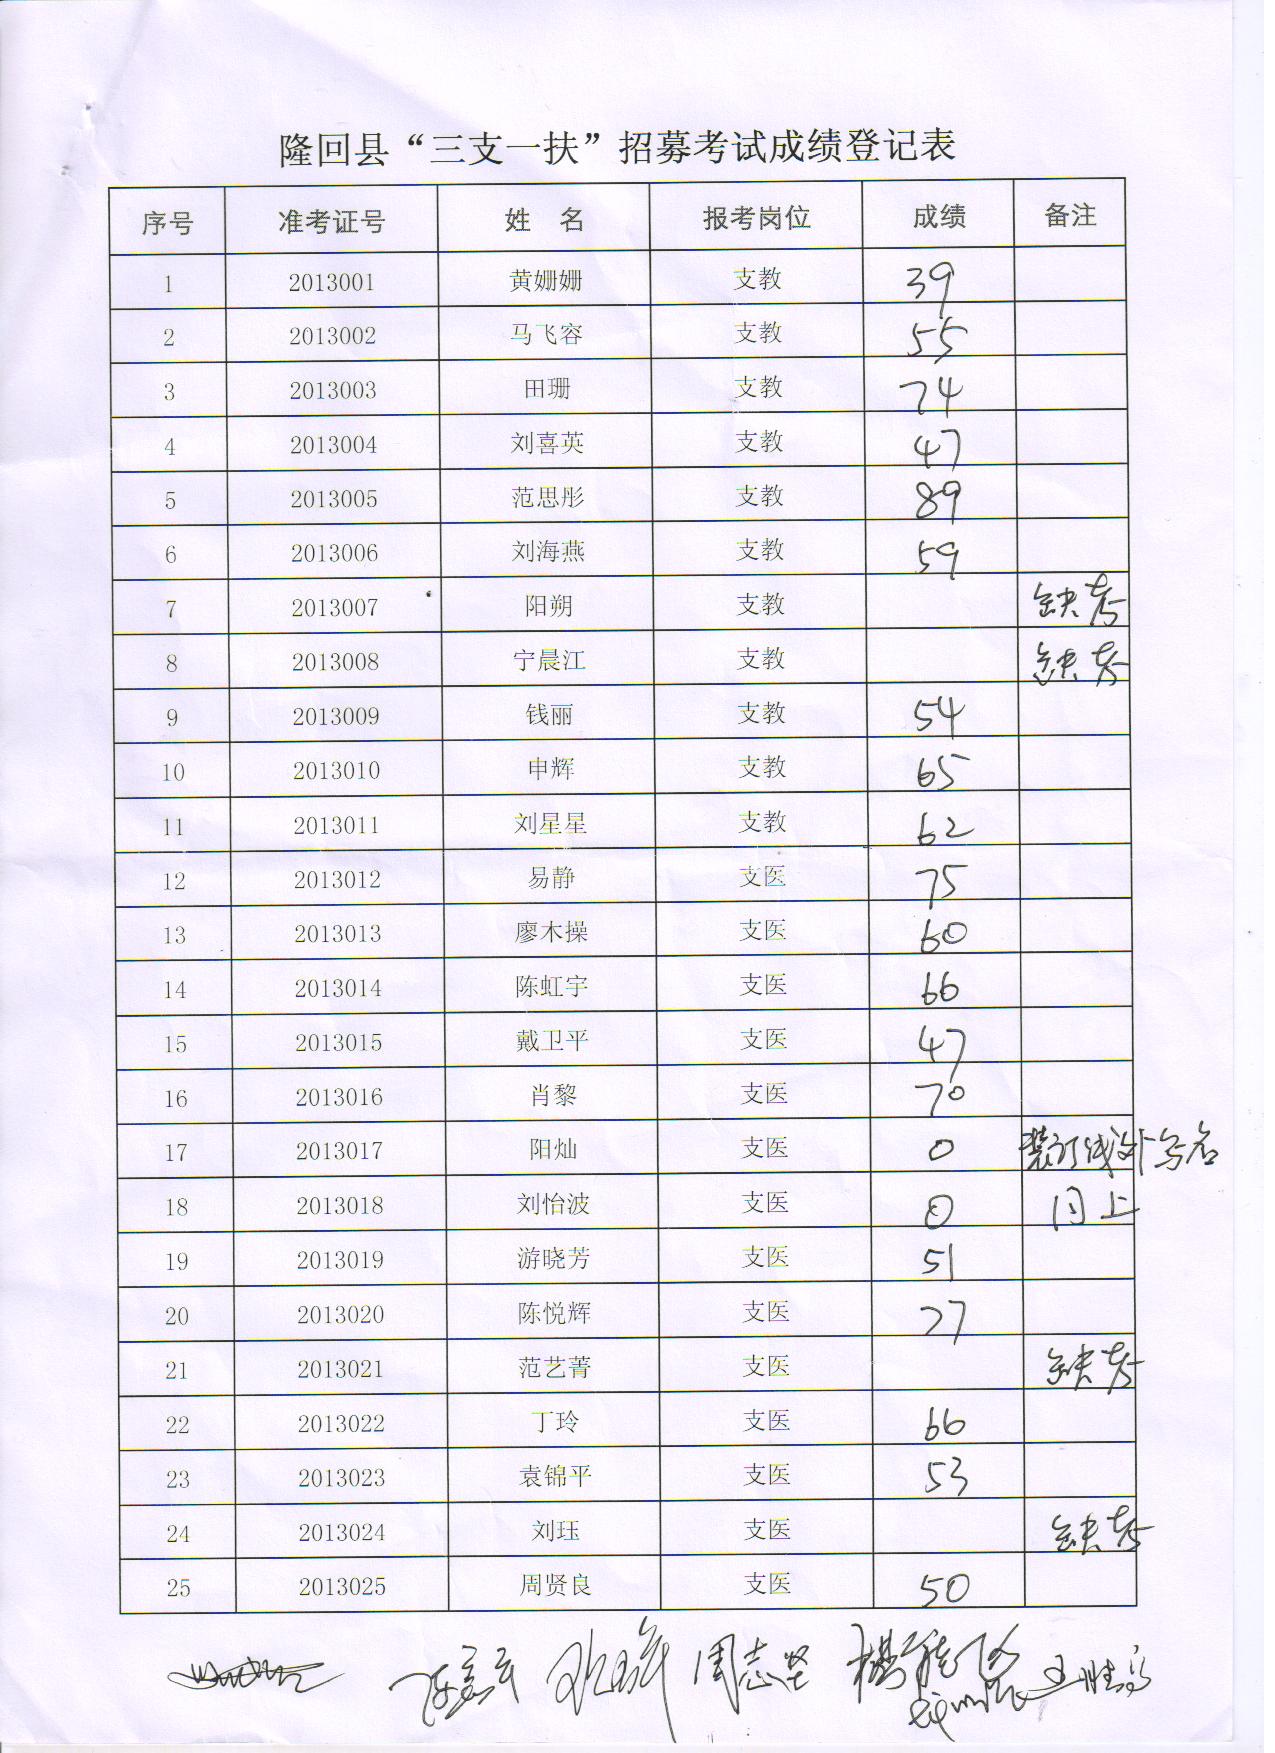 隆回县“三支一扶”招募考试成绩登记表
序号 准考证号 姓 名 报考岗位 成绩 备注
1 2013001 黄姗姗 支教 39
2 2013002 马飞容 支教 55
3 2013003 田珊 支教 74
4 2013004 刘喜英 支教 47
5 2013005 范思彤 支教 89
6 2013006 刘海燕 支教 59
7 2013007 阳朔 支教 缺考
8 2013008 宁晨江 支教 缺考
9 2013009 钱丽 支教 54
10 2013010 申辉 支教 65
11 2013011 刘星星 支教 62
12 2013012 易静 支医 75
13 2013013 廖木操 支医 60
14 2013014 陈虹宇 支医 66
15 2013015 戴卫平 支医 47
16 2013016 肖黎 支医 70
17 2013017 阳灿 支医 0 装订线外写名
18 2013018 刘怡波 支医 0 同上
19 2013019 游晓芳 支医 51
20 2013020 陈悦辉 支医 77
21 2013021 范艺菁 支医 缺考
22 2013022 丁玲 支医 66
23 2013023 袁锦平 支医 53
24 2013024 刘珏 支医 缺考
25 2013025 周贤良 支医 50
周志坚